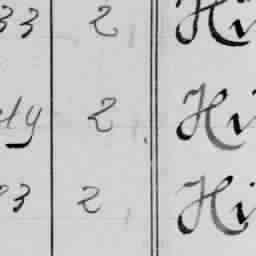 33 2 Hi
ty 2 Hi
3 2 Hi